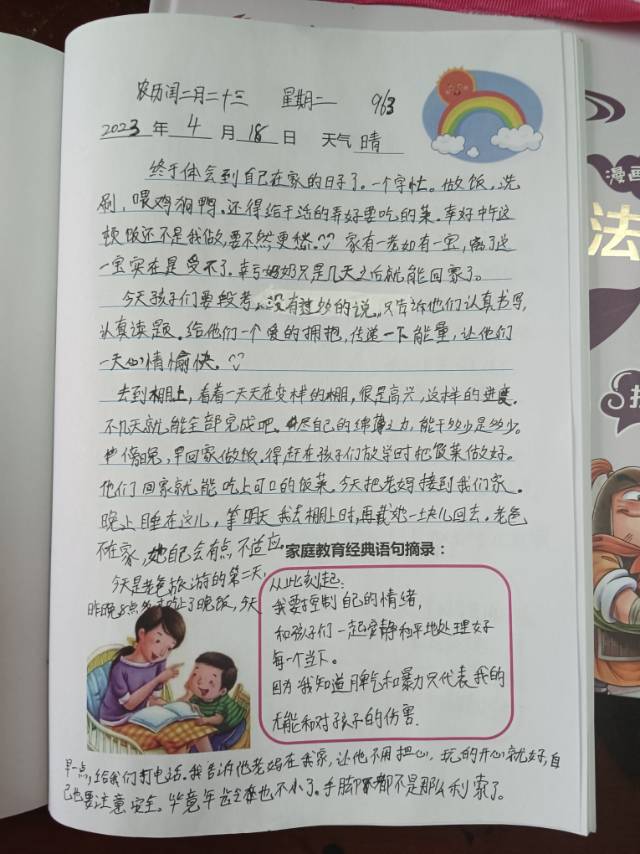 农历闰二月二十三 星期二 963
2023 年 4 月 18 日 天气 晴
终于体会到自己在家的日子了。一个字忙。做饭,洗
刷,喂鸡狗鸭。还得给干活的弄好要吃的菜。幸好中午这
顿饭还不是我做,要不然更愁。家有一老如有一宝,离了这
一宝实在是受不了。幸亏妈妈只是几天之后就能回家了。
今天孩子们要段考,没有过多的说。只告诉他们认真书写,
认真读题。给他们一个爱的拥抱,传递一下能量,让他们
一天心情愉快。
去到棚上,看着一天天在变样的棚,很是高兴,这样的进度。
不几天就能全部完成吧。尽自己的绵薄之力,能干多少是多少。
傍晚,早回家做饭。得赶在孩子们放学时把饭菜做好。
他们回家就能吃上可口的饭菜。今天把老妈接到我们家。
晚上睡在这儿,等明天我去棚上时,再载她一块儿回去。老爸
不在家,她自己会有点不适应。
家庭教育经典语句摘录:
今天是老爸旅游的第二天,
昨晚8点多才吃上了晚饭,今天
从此刻起:
我要控制自己的情绪,
和孩子们一起安静和平地处理好
每一个当下。
因为我知道脾气和暴力只代表我的
无能和对孩子的伤害.
早一点,给我们打电话。我告诉他老妈在我家,让他不用担心,玩的开心就好,自
己也要注意安全。毕竟年龄也不小了。手脚都不是那么利索了。
漫画
法